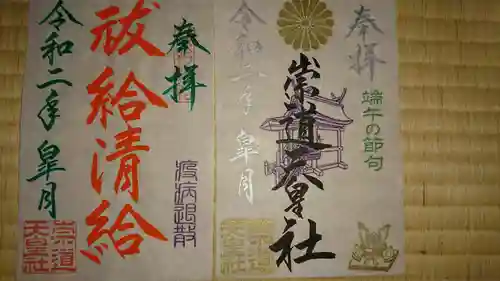 奉拝
崇道天皇社
令和二年 皐月
端午の節句
崇道
天皇社
奉拝
祓給清給
令和二年 皐月
疫病退散
崇道
天皇社